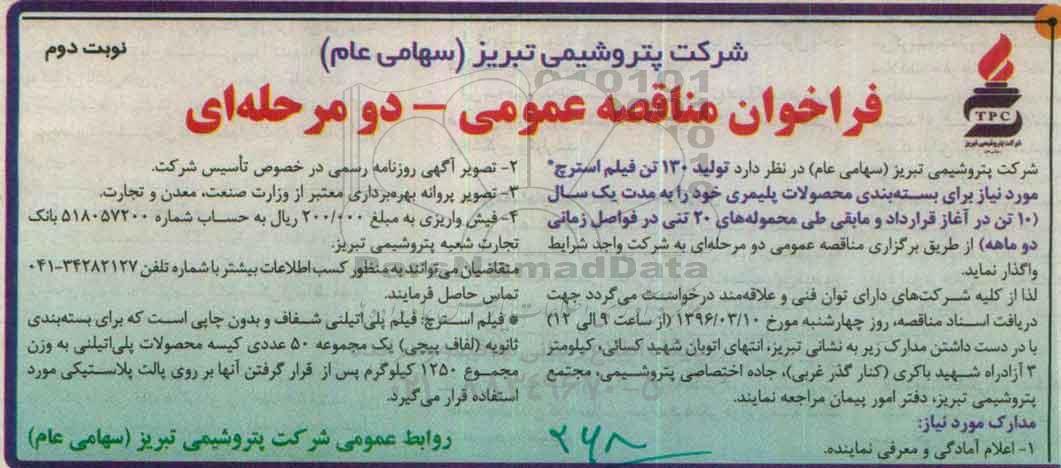 شرکت پتروشیمی تبریز (سهامی عام)
نوبت دوم
فراخوان مناقصه عمومی – دو مرحله‌ای
TPC
شرکت پتروشیمی تبریز
شرکت پتروشیمی تبریز (سهامی عام) در نظر دارد تولید ۱۳۰ تن فیلم استرچ*
مورد نیاز برای بسته‌بندی محصولات پلیمری خود را به مدت یک سال
(۱۰ تن در آغاز قرارداد و مابقی طی محموله‌های ۲۰ تنی در فواصل زمانی
دو ماهه) از طریق برگزاری مناقصه عمومی دو مرحله‌ای به شرکت واجد شرایط
واگذار نماید.
لذا از کلیه شرکت‌های دارای توان فنی و علاقه‌مند درخواست می‌گردد جهت
دریافت اسناد مناقصه، روز چهارشنبه مورخ ۱۳۹۶/۰۳/۱۰ (از ساعت ۹ الی ۱۲)
با در دست داشتن مدارک زیر به نشانی تبریز، انتهای اتوبان شهید کسائی، کیلومتر
۳ آزادراه شهید باکری (کنار گذر غربی)، جاده اختصاصی پتروشیمی، مجتمع
پتروشیمی تبریز، دفتر امور پیمان مراجعه نمایند.
مدارک مورد نیاز:
۱- اعلام آمادگی و معرفی نماینده.
۲- تصویر آگهی روزنامه رسمی در خصوص تأسیس شرکت.
۳- تصویر پروانه بهره‌برداری معتبر از وزارت صنعت، معدن و تجارت.
۴- فیش واریزی به مبلغ ۲۰۰/۰۰۰ ریال به حساب شماره ۵۱۸۰۵۷۲۰۰ بانک
تجارت شعبه پتروشیمی تبریز.
متقاضیان می‌توانند به منظور کسب اطلاعات بیشتر با شماره تلفن ۳۴۲۸۲۱۲۷-۰۴۱
تماس حاصل فرمایند.
* فیلم استرچ: فیلم پلی‌اتیلنی شفاف و بدون چاپی است که برای بسته‌بندی
ثانویه (لفاف پیچی) یک مجموعه ۵۰ عددی کیسه محصولات پلی‌اتیلنی به وزن
مجموع ۱۲۵۰ کیلوگرم پس از قرار گرفتن آنها بر روی پالت پلاستیکی مورد
استفاده قرار می‌گیرد.
روابط عمومی شرکت پتروشیمی تبریز (سهامی عام)
۲۶۸